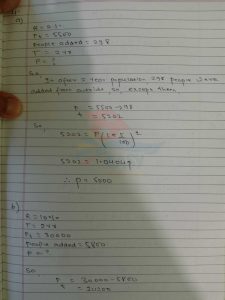 a)
R = 2 %
Pt = 5500
People added = 298
T = 2 yr
P = ?
So,
In after 2 year population 298 people were
added from outside so, except them
P = 5500 - 298
= 5202
So,
5202 = P(1 + 2/100)^2
5202 = 1.0404P
∴ P = 5000
b)
R = 10%
T = 2 yr
Pt = 30000
People added = 5800
P = ?
So,
P = 30000 - 5800
t = 24200